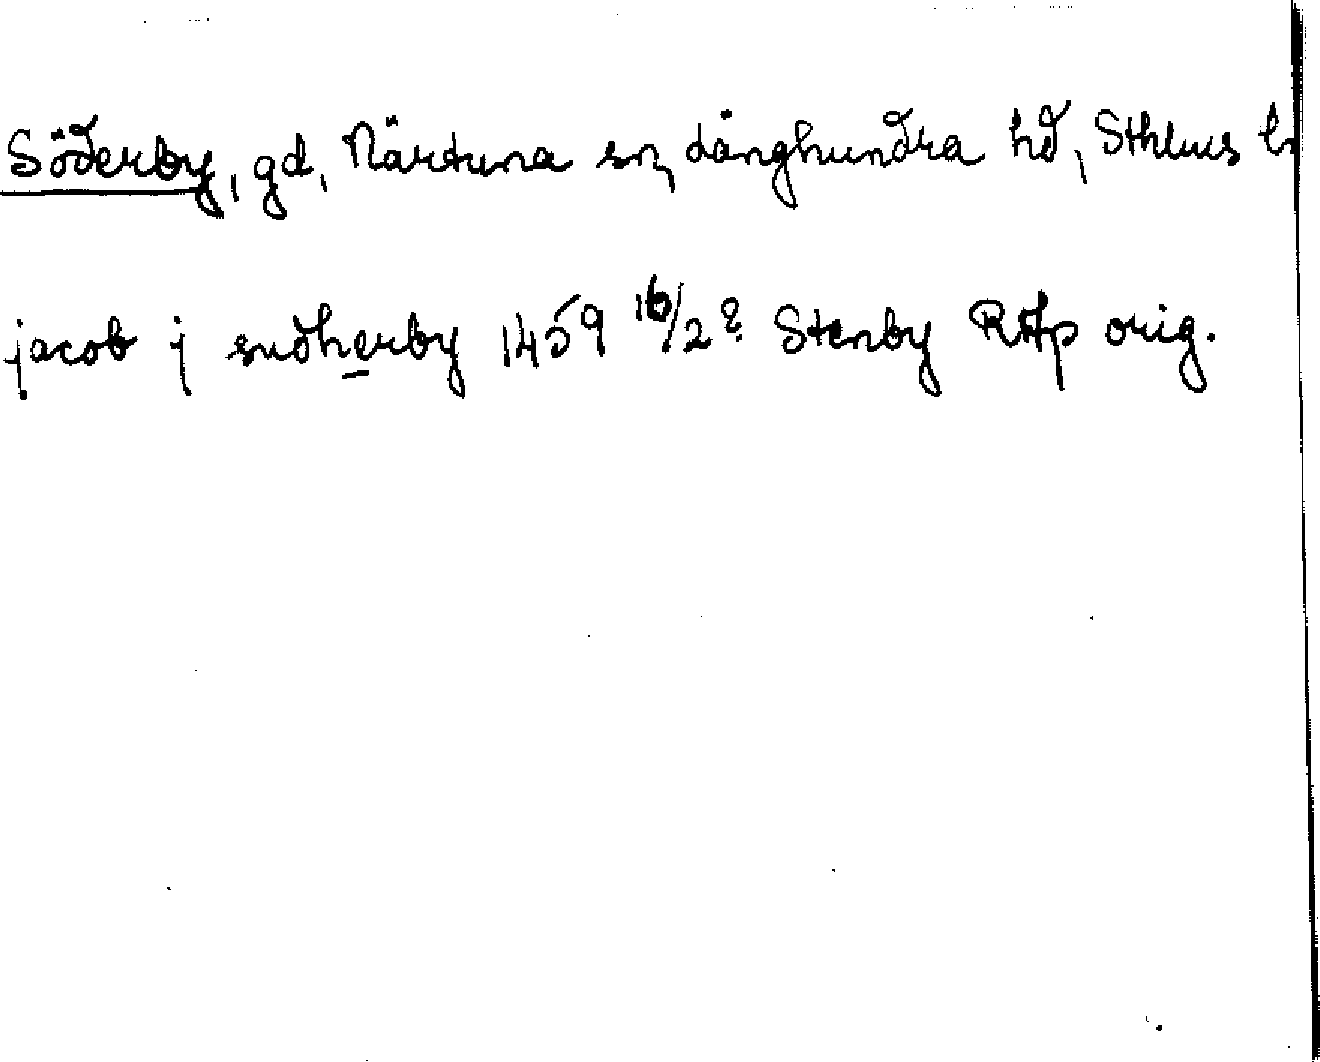 Söderby, gd, Närtuna sn, Långhundra hd, Sthlms l
jacob j sudherby 1459 16/2? Stenby RAp orig.